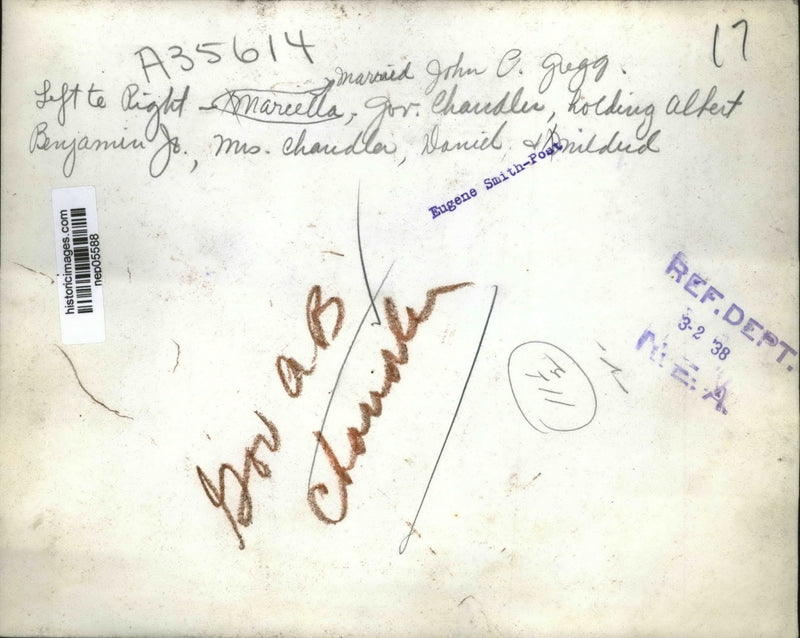 A35614
17
married John O. Gregg.
Left to Right - Marcella, Gov. Chandler, holding Albert
Benjamin Jr., Mrs. Chandler, Daniel, & Mildred
Eugene Smith-Post
historicimages.com
nep05588
REF. DEPT.
3-2 '38
N.E.A.
Gov A B
Chandler